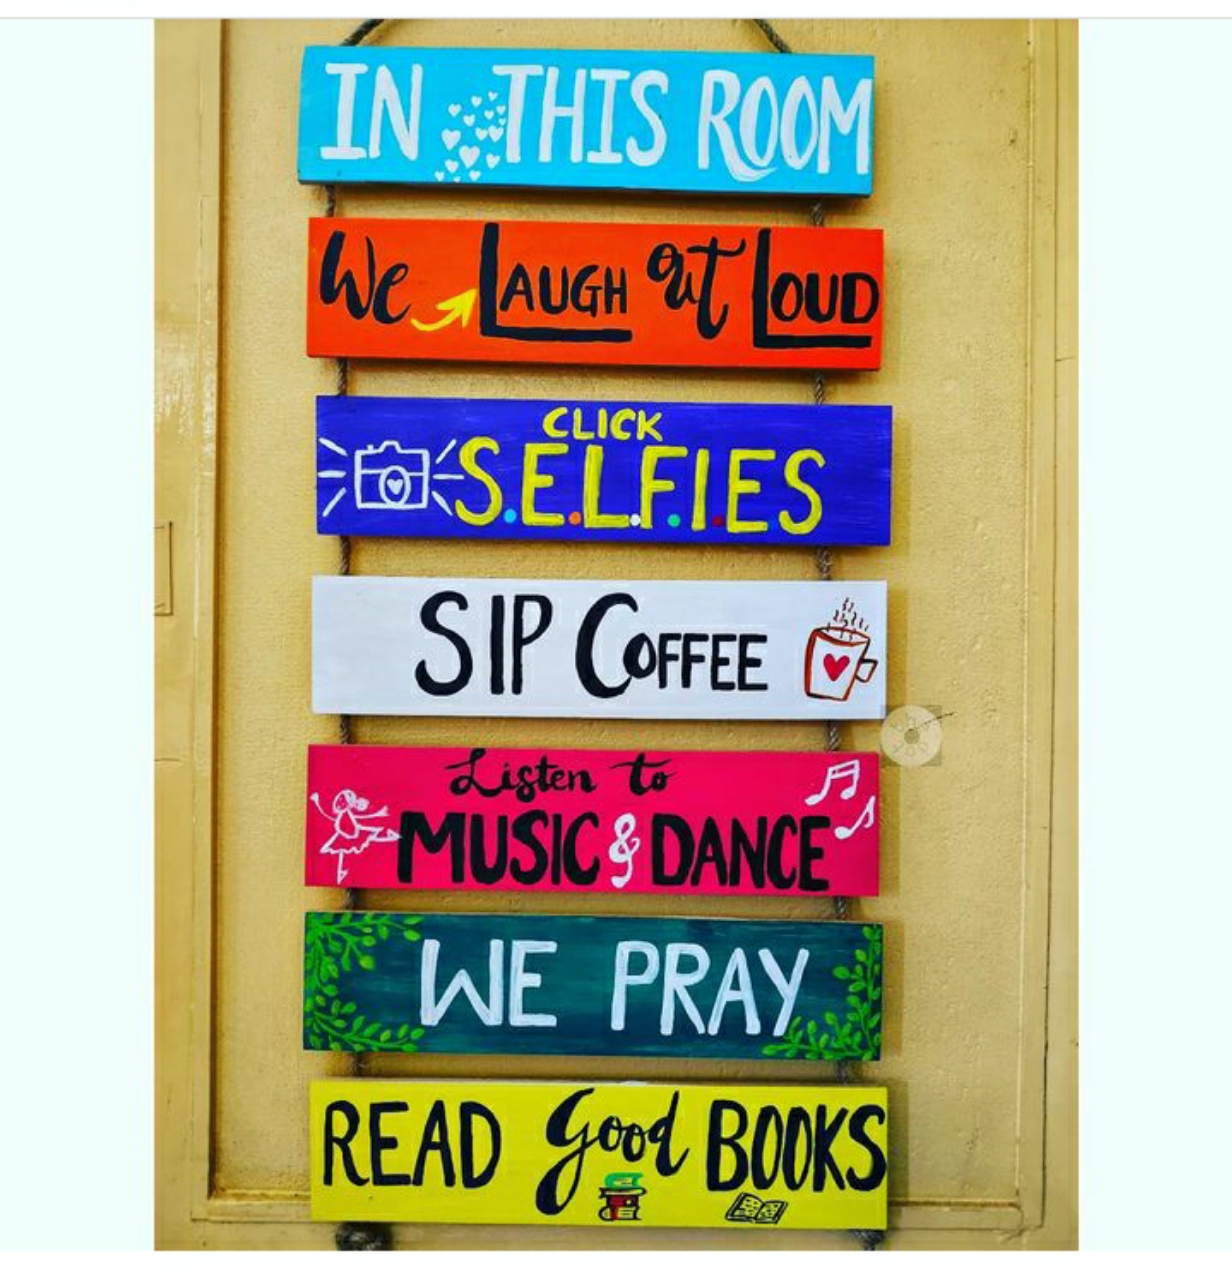 IN THIS ROOM
We LAUGH out LOUD
CLICK
S.E.L.F.I.E.S
SIP COFFEE
Listen to
MUSIC & DANCE
WE PRAY
READ Good BOOKS